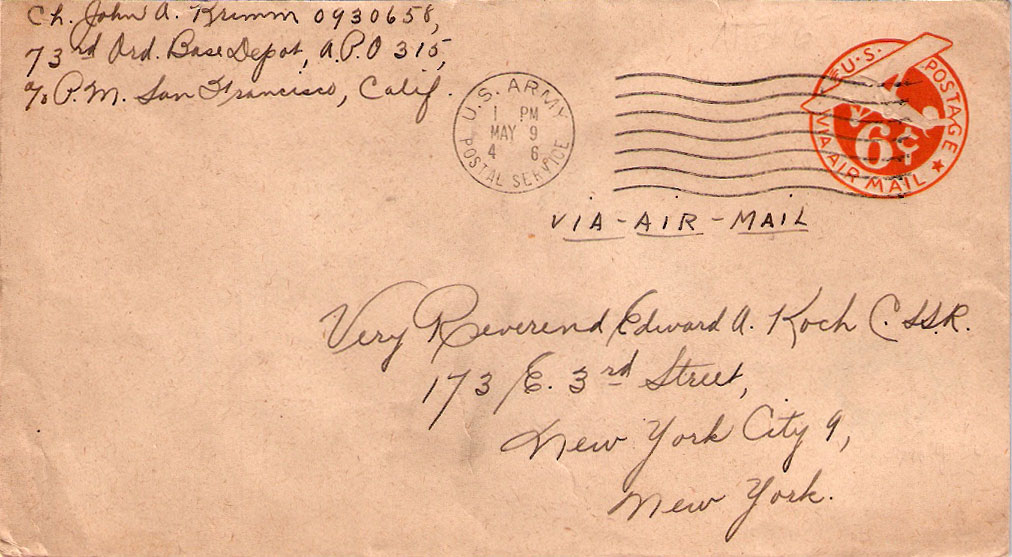 Ch. John A. Kremm 0930658,
73rd Ord. Base Depot, A.P.O 315,
℅ P.M. San Francisco, Calif.
U.S. ARMY
1 PM
MAY 9
4 6
POSTAL SERVICE
U.S. POSTAGE
6¢
VIA AIR MAIL
VIA-AIR-MAIL
Very Reverend Edward A. Koch C.SS.R.
173 E. 3rd Street,
New York City 9,
New York.